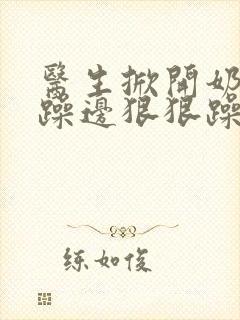 醫生掀開奶
躁邊狠狠躁
练如俊